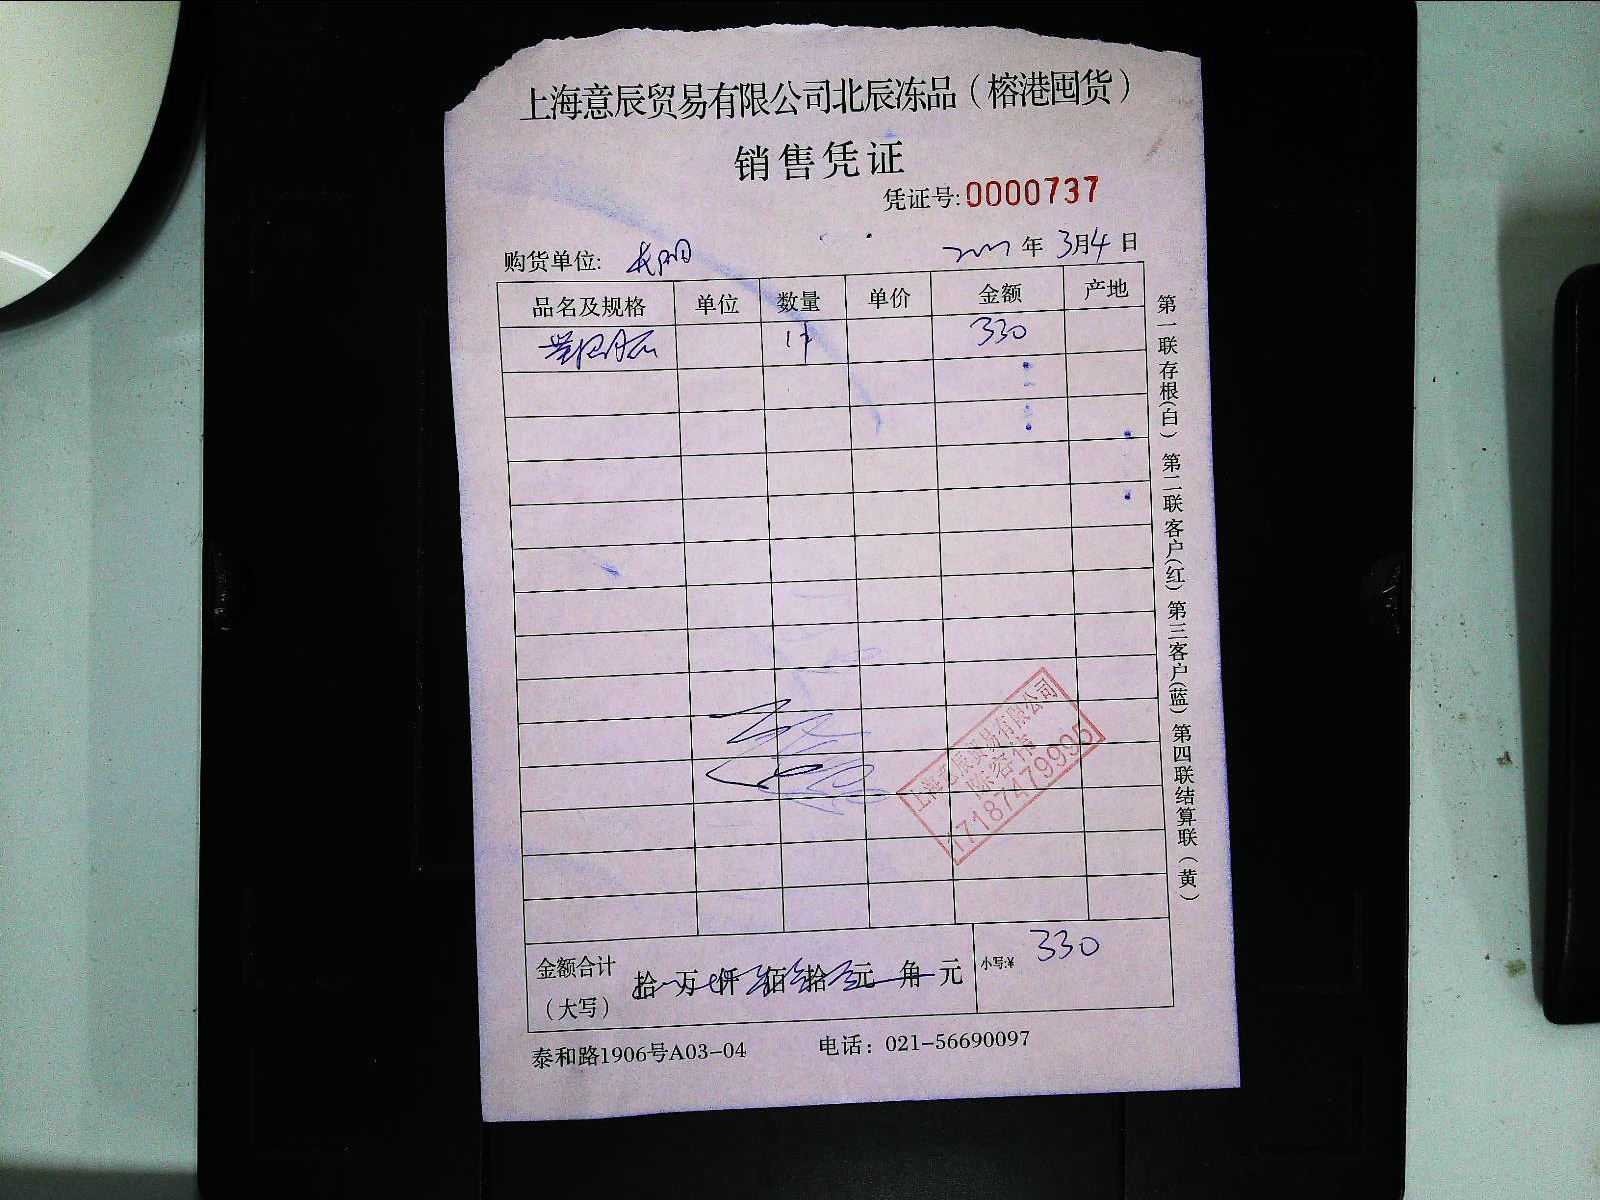 上海意辰贸易有限公司北辰冻品（榕港囤货）
销售凭证
凭证号:0000737
购货单位: 年 3月4日
品名及规格 单位 数量 单价 金额 产地
1件 330
第一联存根(白) 第二联客户(红) 第三客户(蓝) 第四联结算联(黄)
贸易有限公司
17187479995
金额合计（大写） 拾 万 仟 佰 拾 元 角 元 小写:¥ 330
泰和路1906号A03-04 电话：021-56690097